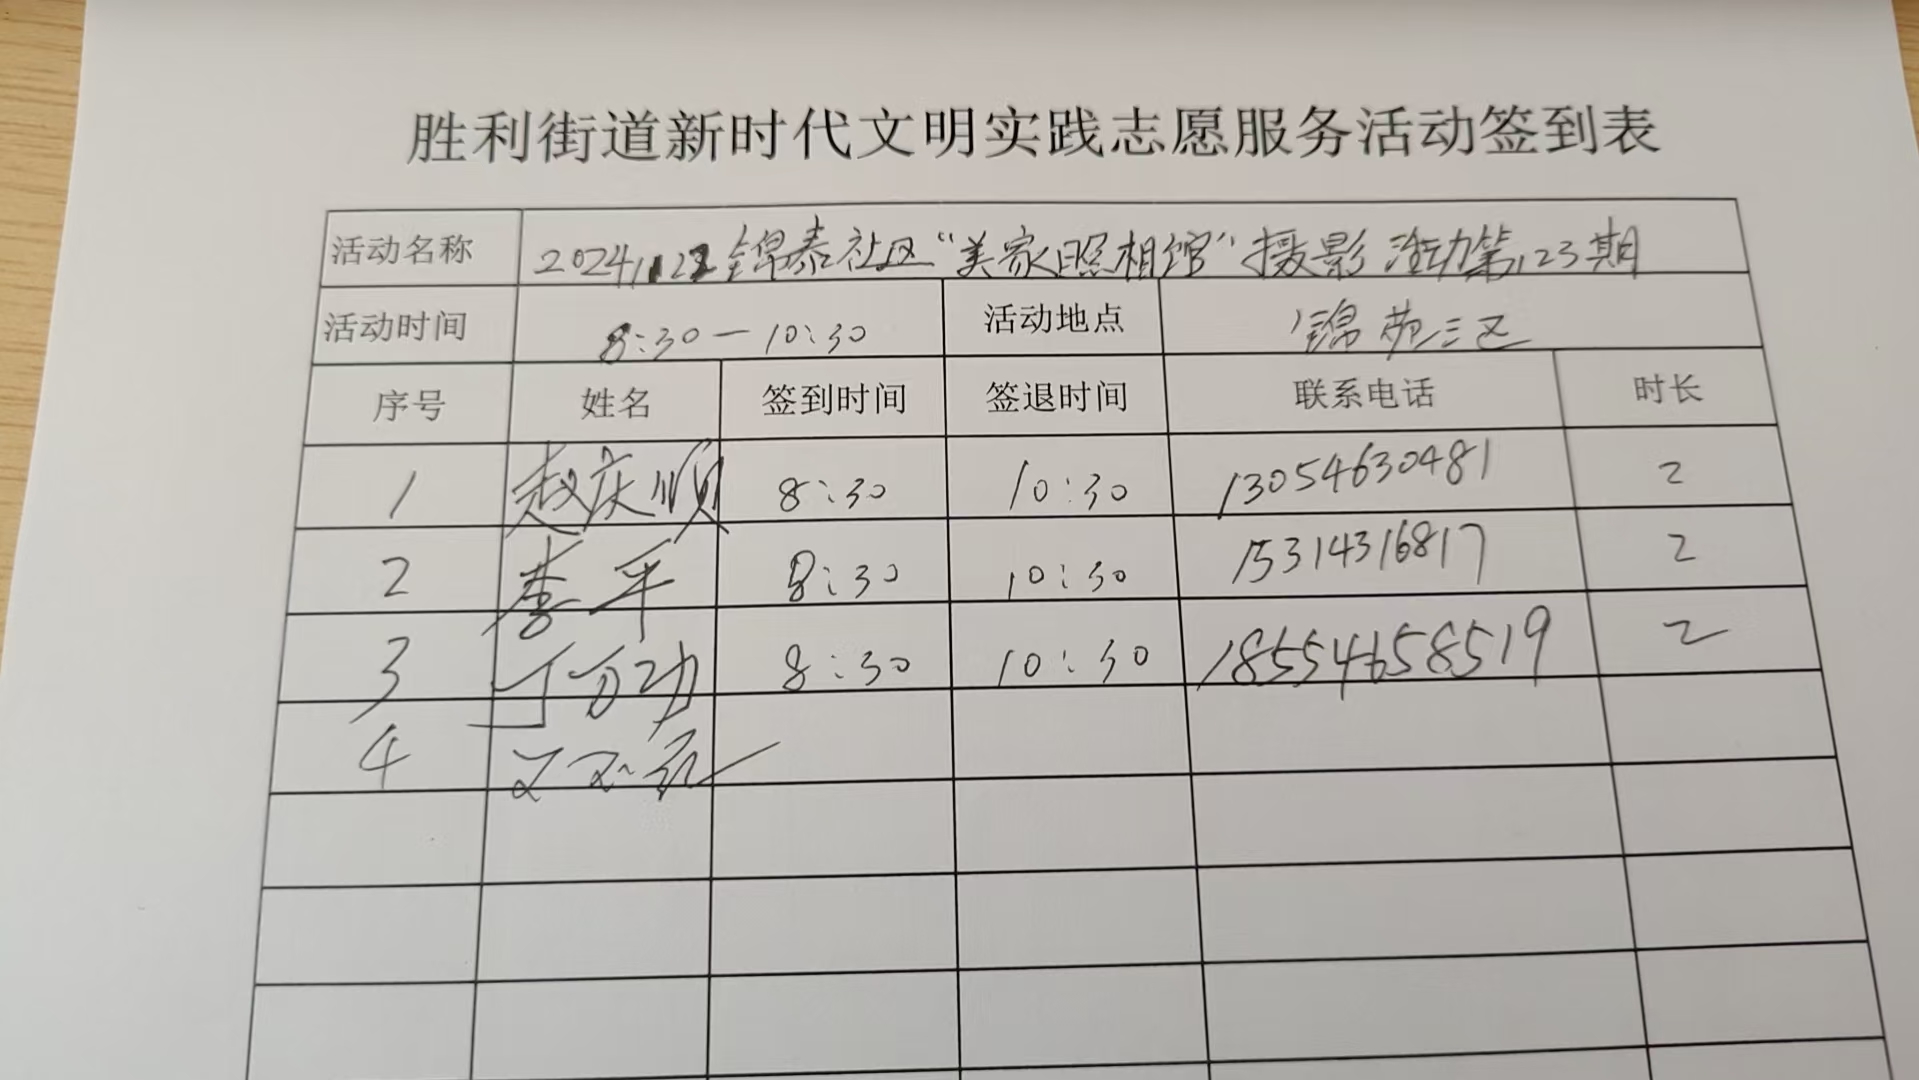 胜利街道新时代文明实践志愿服务活动签到表
活动名称 锦泰社区“美家照相馆”摄影活动第123期
活动时间 8:30—10:30 活动地点 锦苑三区
序号 姓名 签到时间 签退时间 联系电话 时长
1 赵庆顺 8:30 10:30 13054630481 2
2 李平 8:30 10:30 15314316817 2
3 8:30 10:30 18554658519 2
4